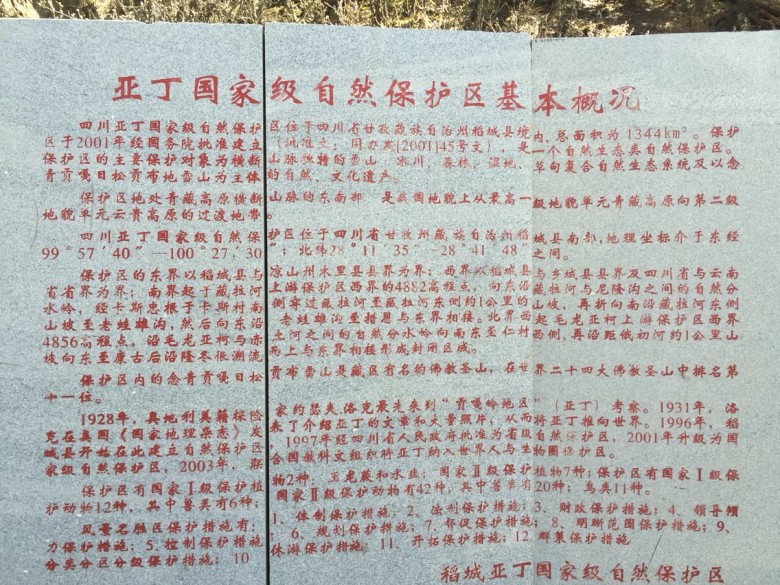 亚丁国家级自然保护区基本概况
四川亚丁国家级自然保护区位于四川省甘孜藏族自治州稻城县境内，总面积为1344km²。保护
区于2001年经国务院批准建立（批准文：国办发[2001]45号文），是一个自然生态类自然保护区。
保护区的主要保护对象为横断山脉独特的雪山、冰川、森林、湿地、草甸复合自然生态系统及以念
青贡嘎日松贡布地雪山为主体的自然、文化遗产。
保护区地处青藏高原横断山脉的东南部 是我国地貌上从最高一级地貌单元青藏高原向第二级
地貌单元云贵高原的过渡地带。
四川亚丁国家级自然保护区位于四川省甘孜州藏族自治州稻城县南部，地理坐标介于东经
99°57′40″—100°27′30″；北纬28°11′35″-28°41′48″之间。
保护区的东界以稻城县与凉山州木里县县界为界；西界以稻城县与乡城县县界及四川省与云南
省省界为界；南界起于藏拉河上游保护区西界的4882高程点，向东沿藏拉河与尼隆沟之间的自然分
水岭，经卡斯忠根于卡斯村南侧穿过藏拉河至藏拉河东侧约1公里的山坡，再折向南沿藏拉河东侧
山坡至老蛙雄沟，然后向东沿老蛙雄沟至措恩与东界相接。北界西起毛龙亚柯上游保护区西界
4856高程点，沿毛龙亚柯与赤土河之间的自然分水岭向南东至仁村西侧，再沿距俄初河约1公里山
坡向东至康古后沿隆冬很溯流而上与东界相接形成封闭区域。
保护区内的念青贡嘎日松贡布雪山是藏区有名的佛教圣山，在世界二十四大佛教圣山中排名第
十一位。
1928年，奥地利美籍探险家约瑟夫·洛克最先来到“贡嘎岭地区”（亚丁）考察。1931年，洛
克在美国《国家地理杂志》发表了介绍亚丁的文章和大量照片，从而将亚丁推向世界。1996年，稻
城县开始在此建立自然保护区，1997年经四川省人民政府批准为省级自然保护区，2001年升级为国
家级自然保护区，2003年，联合国教科文组织将亚丁纳入世界人与生物圈保护区。
保护区有国家Ⅰ级保护植物2种：玉龙蕨和水韭；国家Ⅱ级保护植物7种；保护区有国家Ⅰ级保
护动物12种，其中兽类有6种；国家Ⅱ级保护动物有42种，其中兽类有20种；鸟类11种。
风景名胜区保护措施有：1、体制保护措施；2、法制保护措施；3、财政保护措施；4、领导倾
力保护措施；5、控制保护措施；6、规划保护措施；7、督促保护措施；8、明晰范围保护措施；9、
分类分区分级保护措施；10、休游保护措施、11、开拓保护措施；12、群策保护措施
稻城亚丁国家级自然保护区